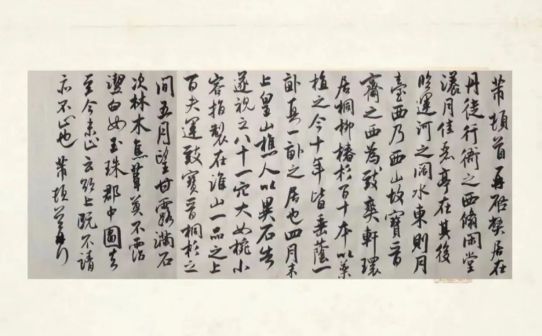 芾頓首再啓弊居在
丹徒行衙之西翛閑堂
漾月佳麗亭在其後
臨運河之闊水東則月
臺西乃西山故寶晉
齋之西為致爽軒環
居桐柳椿杉百十本以藥
植之今十年皆垂蔭一
畝真一畝之居也四月末
上皇山樵人以異石告
遂視之八十一穴大如椀小
容指製在淮山一品之上
百夫運致寶晉桐杉之
間五月望甘露滿石
次林木焉葦莫不霑
潔白如玉珠郡中圖去
至今未止云欲上既不請
亦不止也 芾頓首